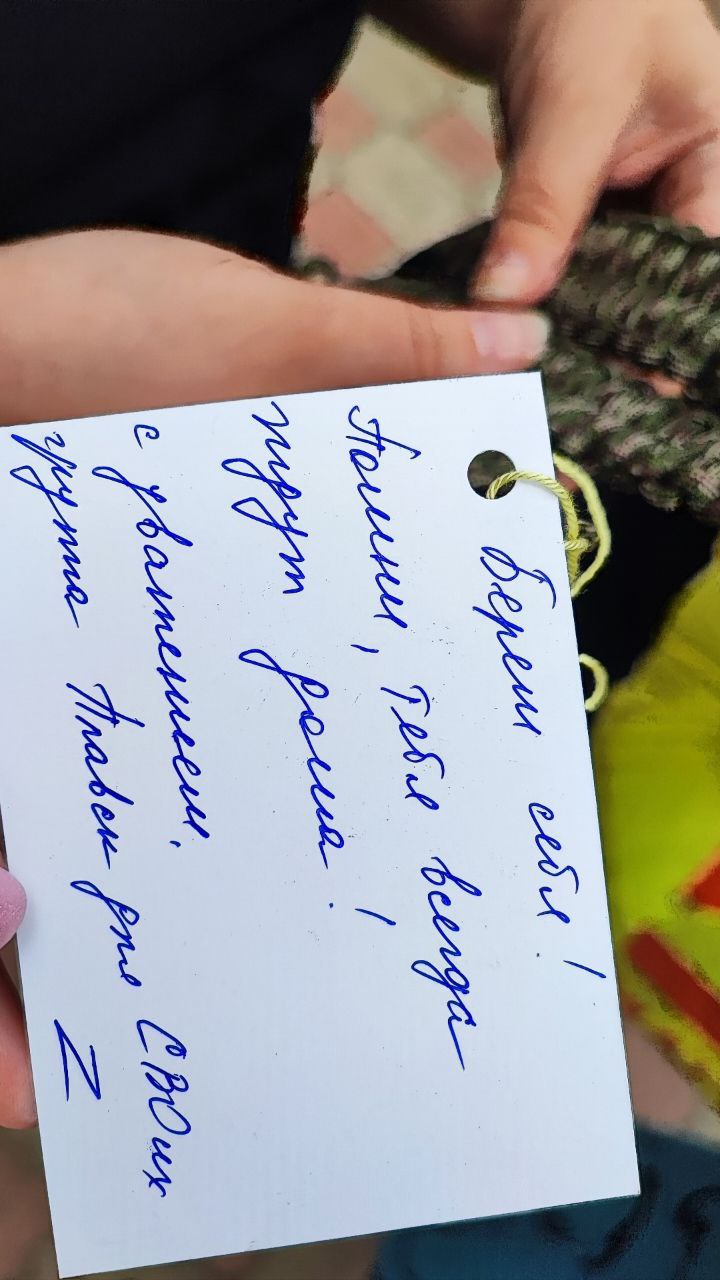 Береги себя!
Помни, тебя всегда
ждут дома!
с уважением.
группа Плавск для СВОих
Z